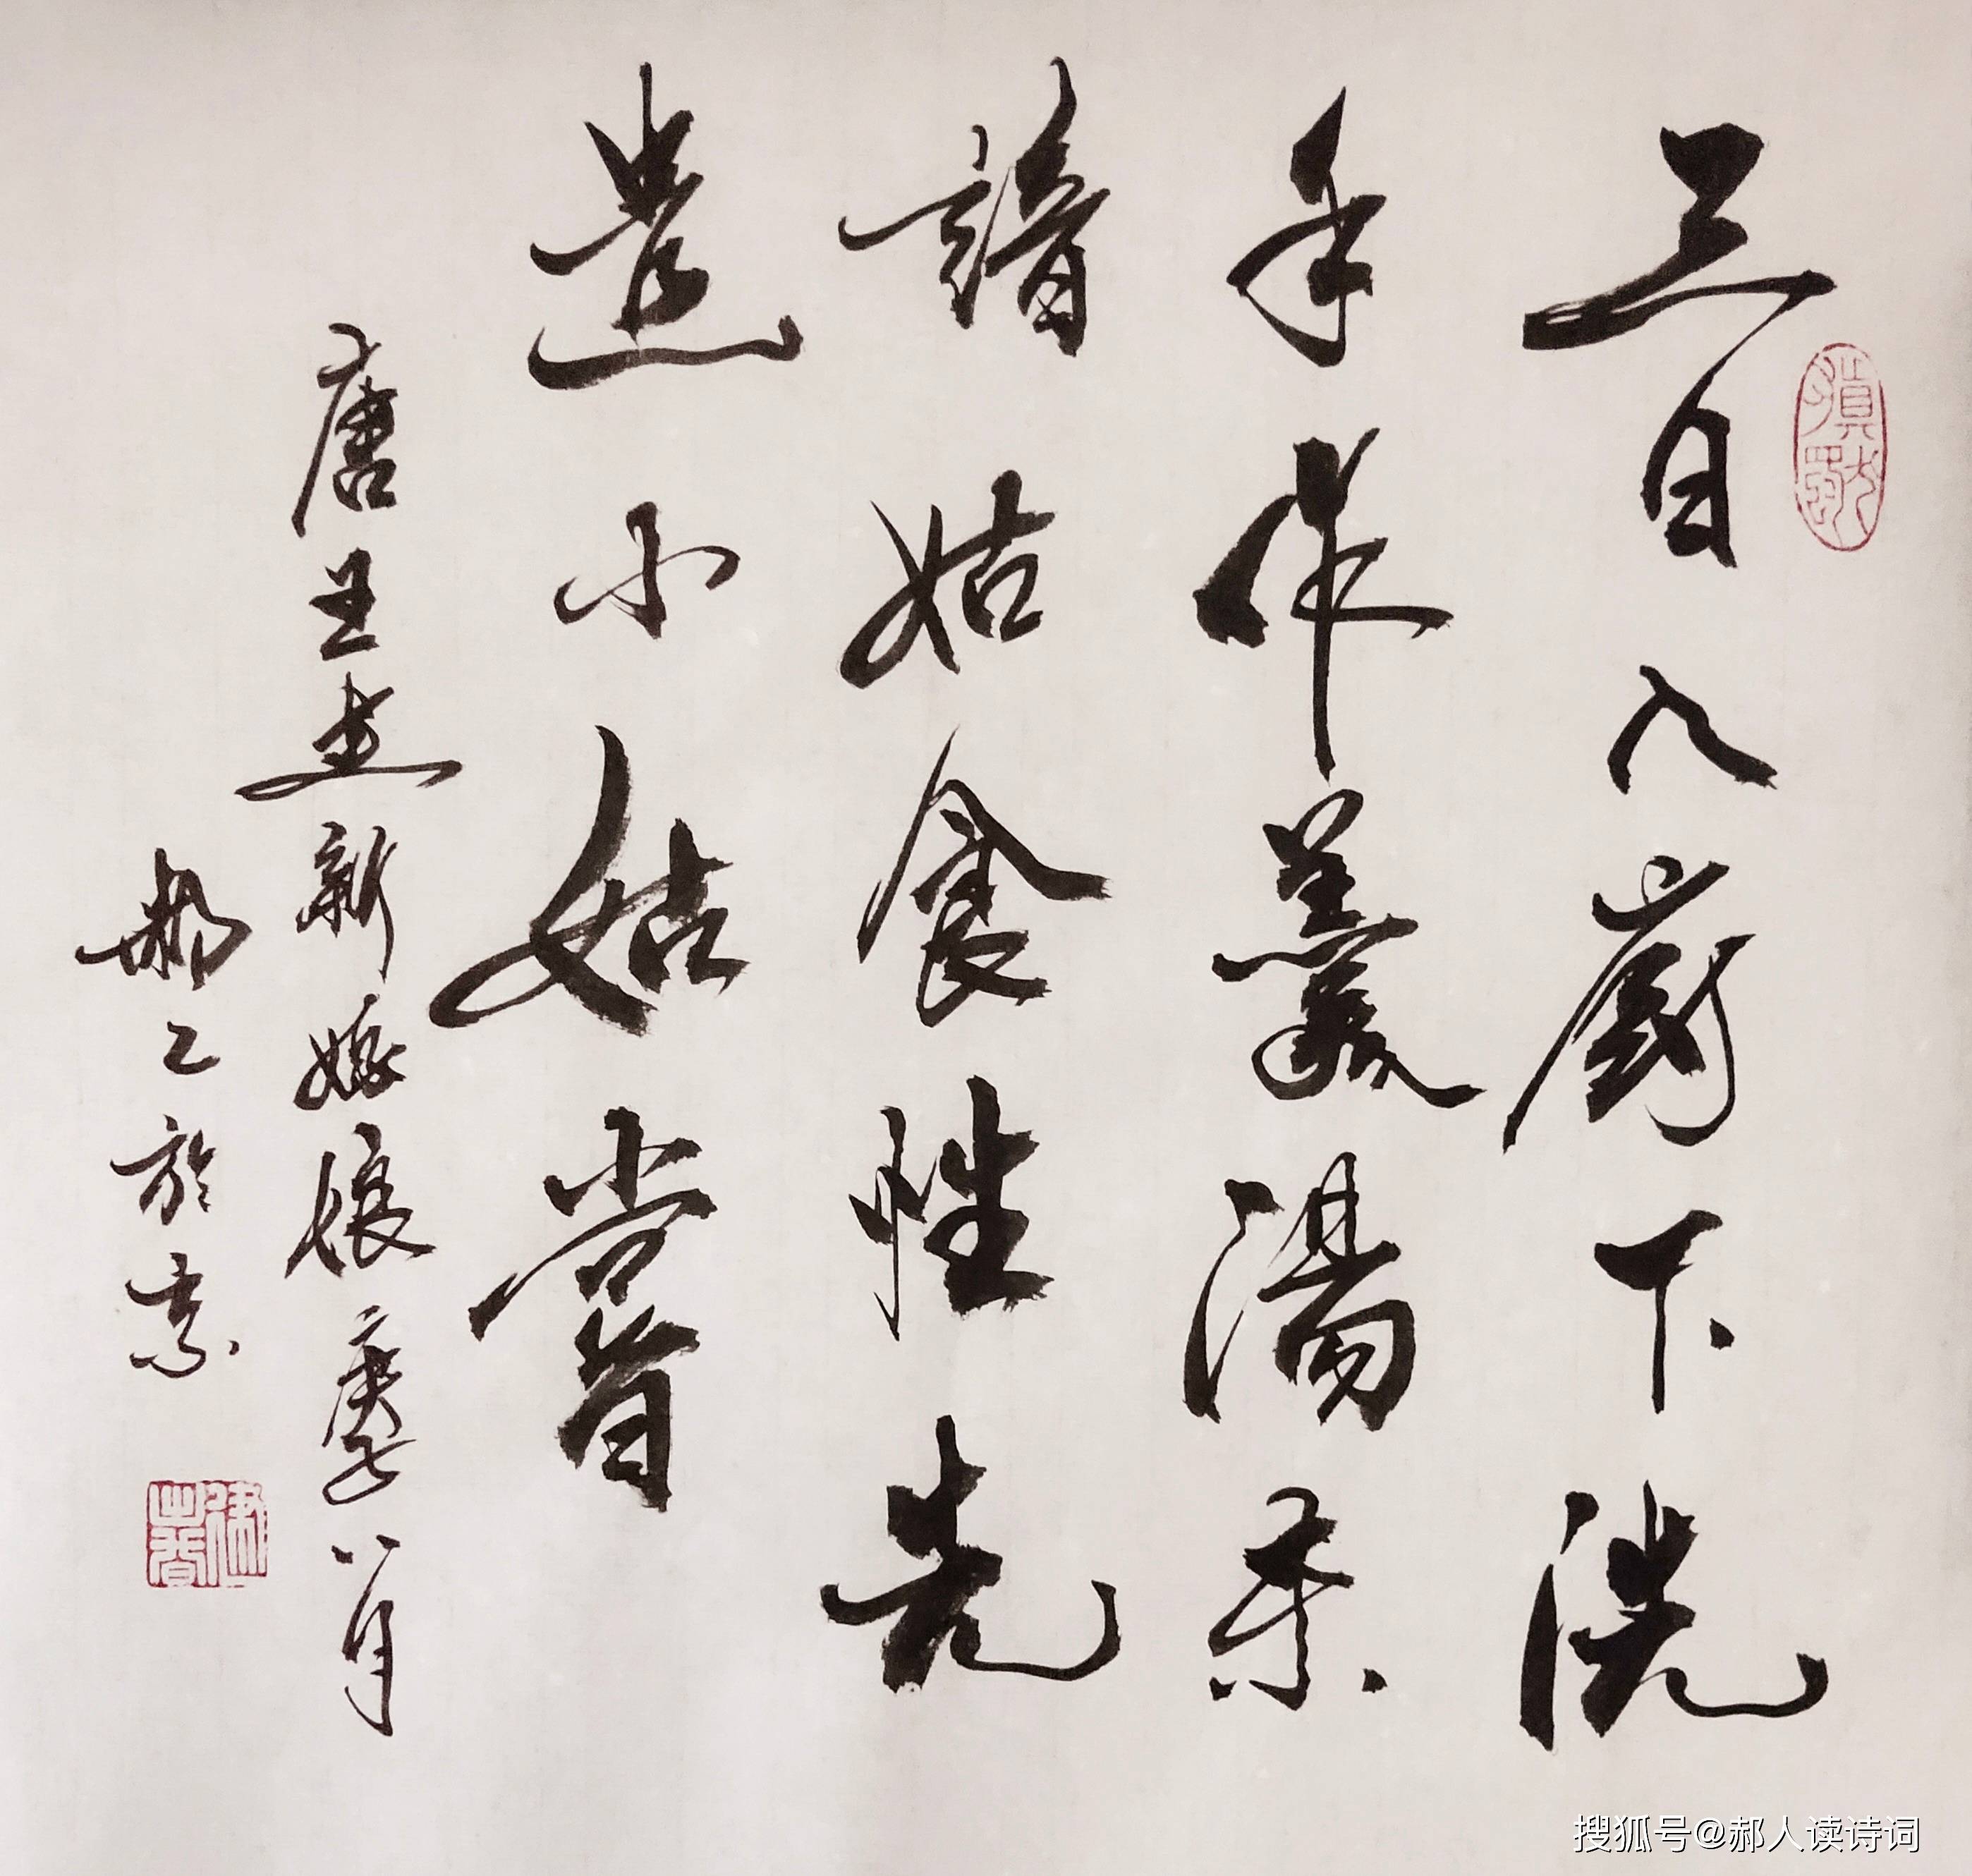 三日入廚下洗
手作羹湯未
諳姑食性先
遣小姑嘗
唐王建新嫁娘庚子八月
於京
搜狐号@郝人读诗词